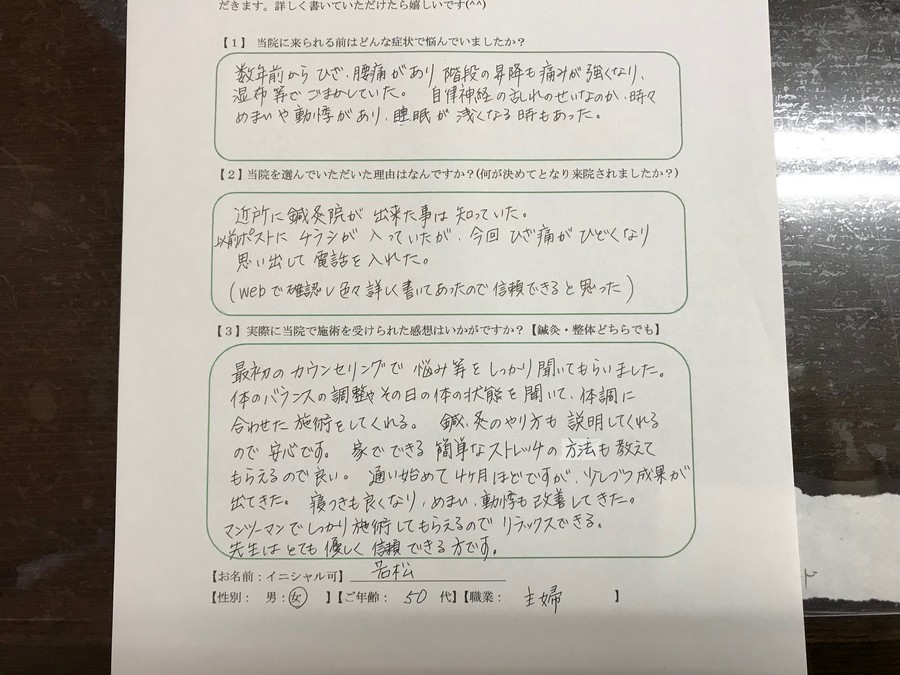 だきます。詳しく書いていただけたら嬉しいです(^^)
【１】 当院に来られる前はどんな症状で悩んでいましたか？
数年前から ひざ、腰痛があり 階段の昇降も痛みが強くなり、
湿布等で ごまかしていた。 自律神経の乱れのせいなのか、時々
めまいや動悸があり、睡眠が浅くなる時もあった。
【２】当院を選んでいただいた理由はなんですか？(何が決めてとなり来院されましたか？)
近所に鍼灸院が出来た事は知っていた。
以前ポストに チラシが 入っていたが、今回 ひざ痛がひどくなり
思い出して 電話を入れた。
(webで確認し色々詳しく書いてあったので信頼できると思った)
【３】実際に当院で施術を受けられた感想はいかがですか？【鍼灸・整体どちらでも】
最初のカウンセリングで 悩み等をしっかり聞いてもらいました。
体のバランスの調整やその日の体の状態を聞いて、体調に
合わせた施術をしてくれる。 鍼、灸のやり方も 説明してくれる
ので 安心です。 家でできる 簡単なストレッチの方法も教えて
もらえるので良い。 通い始めて4ヶ月ほどですが、少しづつ成果が
出てきた。 寝つきも良くなり、めまい、動悸も改善してきた。
マンツーマンでしっかり施術してもらえるので リラックスできる。
先生はとても優しく信頼できる方です。
【お名前：イニシャル可】 若松
【性別： 男：女 】【ご年齢： 50 代】【職業： 主婦 】